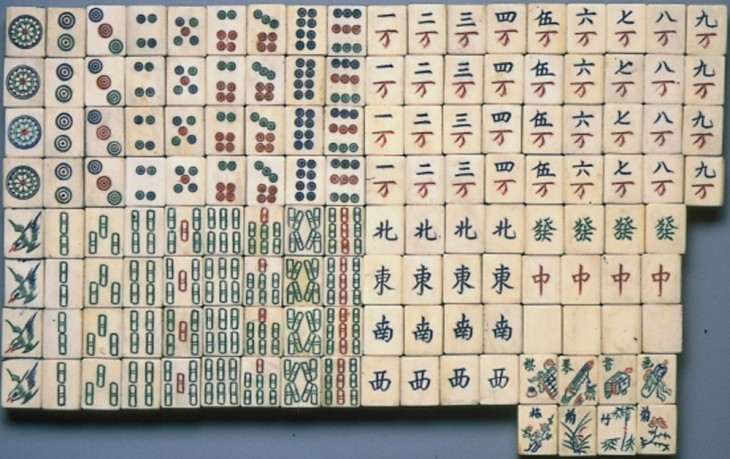 一 二 三 四 伍 六 七 八 九
万 万 万 万 万 万 万 万 万
一 二 三 四 伍 六 七 八 九
万 万 万 万 万 万 万 万 万
一 二 三 四 伍 六 七 八 九
万 万 万 万 万 万 万 万 万
一 二 三 四 伍 六 七 八 九
万 万 万 万 万 万 万 万 万
北 北 北 北 發 發 發 發
東 東 東 東 中 中 中 中
南 南 南 南
西 西 西 西 琴
梅 竹 菊